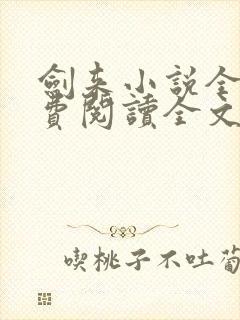 劍来小説全
費閱讀全文
喫桃子不吐葡